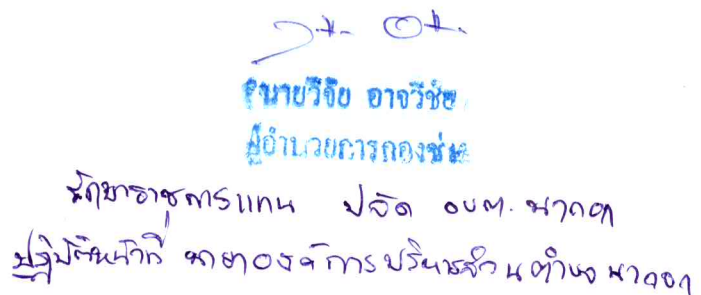 (นายวิจัย อาจวิชัย)
ผู้อำนวยการกองช่าง
รักษาราชการแทน ปลัด อบต. นากอก
ปฏิบัติหน้าที่ นายกองค์การบริหารส่วนตำบล นากอก